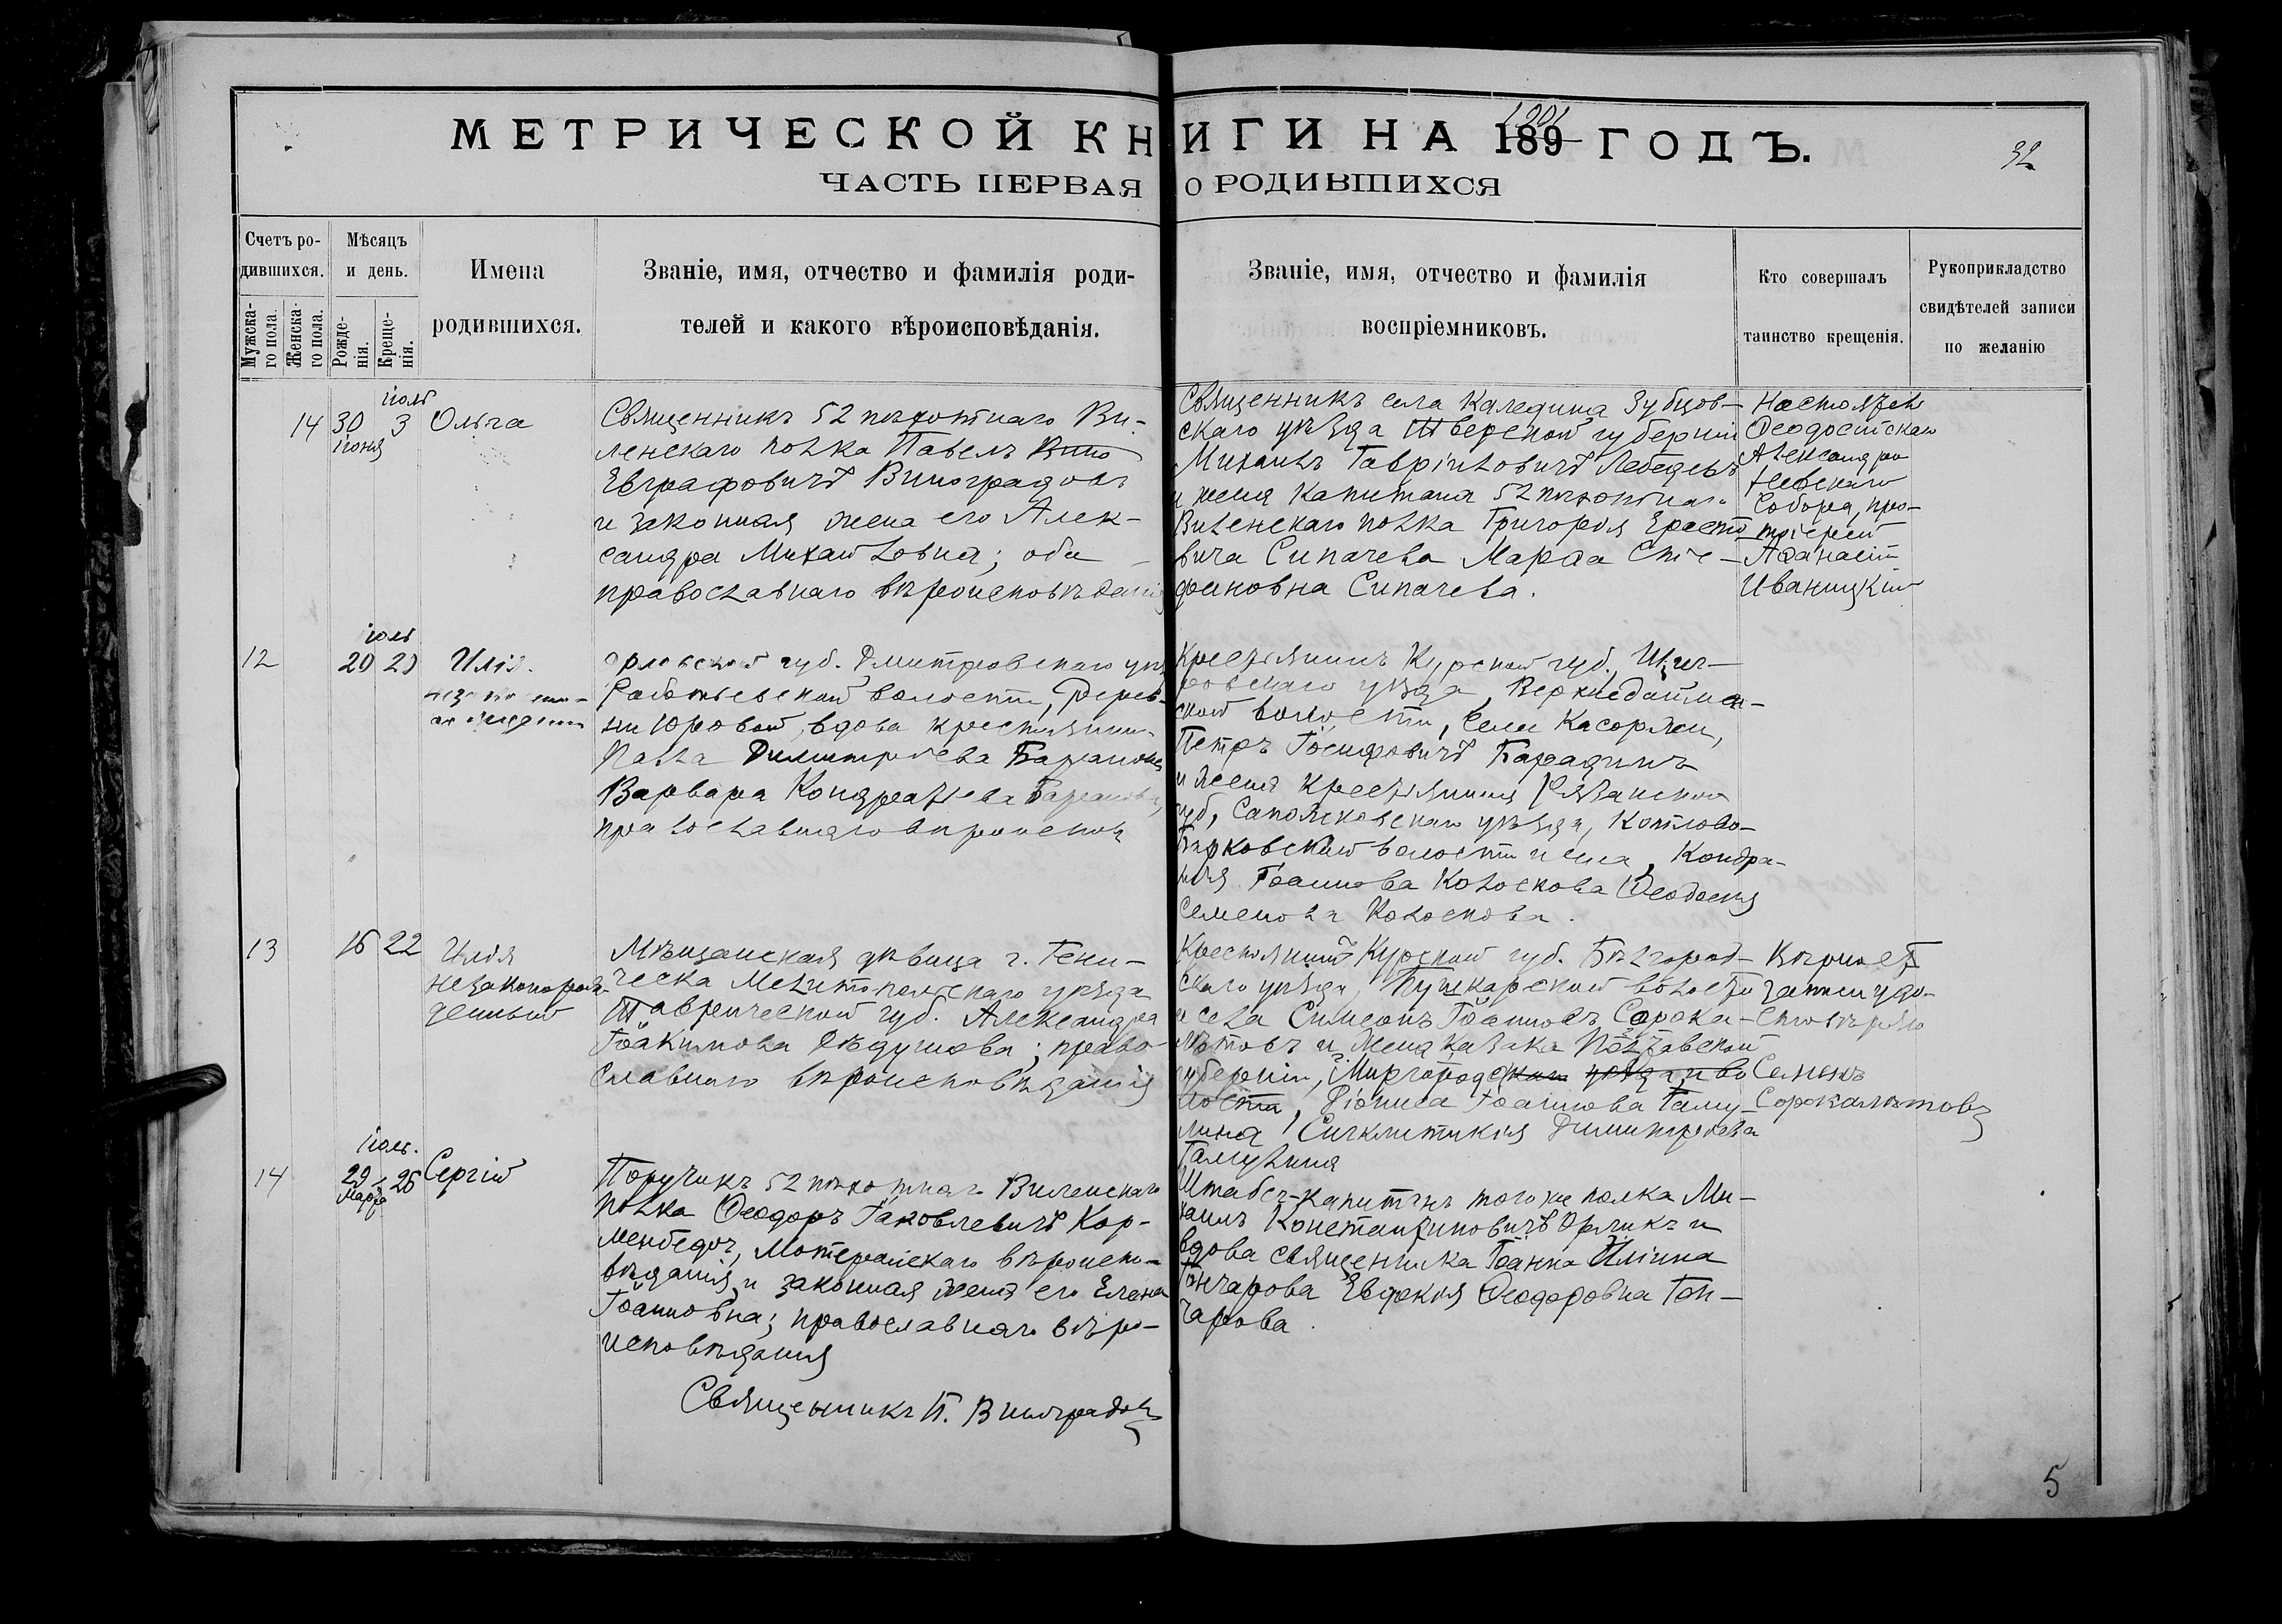 МЕТРИЧЕСКОЙ КНИГИ НА 189 1901 ГОДЪ.
32
ЧАСТЬ ПЕРВАЯ О РОДИВШИХСЯ
Счетъ ро-
дившихся.
Мужска-
го пола.
Женска-
го пола.
Мѣсяцъ
и день.
Рожде-
нія.
Креще-
нія.
Имена
родившихся.
Званіе, имя, отчество и фамилія роди-
телей и какого вѣроисповѣданія.
Званіе, имя, отчество и фамилія
воспріемниковъ.
Кто совершалъ
таинство крещенія.
Рукоприкладство
свидѣтелей записи
по желанію
14
30 Іюня
Іюль 3
Ольга
Священникъ 52 пѣхотнаго Ви-
ленскаго полка Павелъ Вино
Евграфовичъ Виноградовъ
и законная жена его Алек-
сандра Михайловна; оба
православнаго вѣроисповѣданія
Священникъ села Каледина Зубцов-
скаго уѣзда Тверской губерніи
Михаилъ Гавріиловичъ Лебедевъ
и жена Капитана 52 пѣхотнаго
Виленскаго полка Григорія Ерасто
вича Сипачева Марѳа Сте-
фановна Сипачева.
Настоятель
Ѳеодосійскаго
Александро
Невскаго
Собора, про-
тоіерей
Аѳанасій
Иваницкій
12
Іюль
20 20
Илія.
Орловской губ. Дмитровскаго уѣз
волости, Дерев-
ни Юровой, вдова крестьянина
Павла Димитріева Баранова
Варвара Кондратьева Баранова,
православнаго вѣроиспов
Крестьянинъ Курской губ., Щиг-
ровскаго уѣзда,
ской волости, Села Касоржи,
Петръ Іосифовичъ
и жена крестьянина Рязанской
губ, Сапожковскаго уѣзда,
волости и села, Кондра-
тія Іоаннова Колоскова Ѳеодосія
Семенова Колоскова.
13
16 22
Илія
незаконорож-
денный
Мѣщанская дѣвица г. Гени-
ческа Мелитопольскаго уѣзда
Таврической губ. Александра
Іоакимова Ѳедунова; право-
славнаго вѣроисповѣданія
Крестьянинъ Курской губ. Бѣлгород-
скаго уѣзда, Пушкарской волости
и села Симеонъ Іоанновъ Сорока-
лѣтовъ и жена казака Полтавской
губерніи, Миргородскаго уѣзда и во
лости, Діониса Іоаннова Галу-
лина Сигклитикія Димитріева
Галушкина
Вѣрность
записи удо-
стовѣряю
Семенъ
Сорокалѣтовъ
14
Іюль.
29 Марта
26
Сергій
Поручикъ 52 пѣхотнаго Виленскаго
полка Ѳеодоръ Іаковлевичъ Кар-
лютеранскаго вѣроиспо-
вѣданія, и законная жена его Елена
Іоанновна; православнаго вѣро-
исповѣданія
Штабсъ-капитанъ того же полка Ми-
хаилъ Константиновичъ Орликъ и
вдова священника Іоанна Іліина
Гончарова Евдокія Ѳеодоровна Гон-
чарова.
Священникъ П. Виноградовъ
5